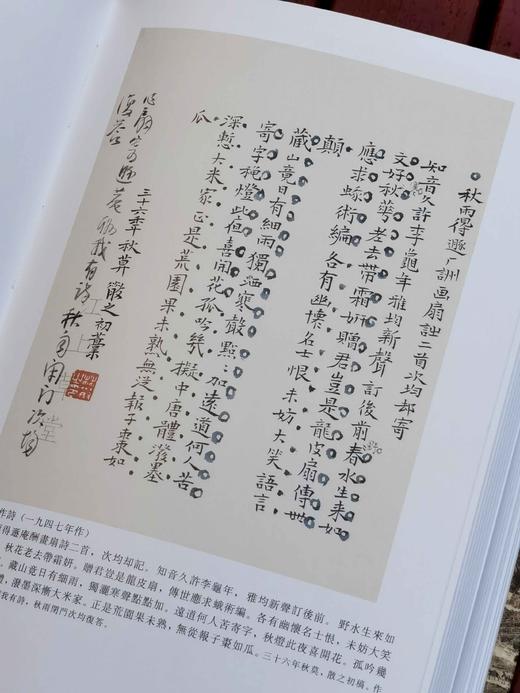 秋雨得遯厂詶画扇詩二首次均却寄
知音久許李龜年雅均新聲訂後前春水生来如
文好秋華老去帶霜妍贈君豈是龍皮扇傳世
應求蛾術編各有幽懷名士恨未妨大笑語言
顛
藏山竟日有細雨獨灑寒聲點點加遠道何人苦
寄字秋燈此夜喜開花孤吟幾擬中唐體潑墨
深慙大米家正是荒園果未熟無從報子棗如
瓜
三十六年秋莫 散之初稾
扇寄遯菴我有詩秋雨閉門次均
復答
作詩（一九四七年作）
得遯庵酬畫扇詩二首，次均却記。知音久許李龜年，雅均新聲訂後前。野水生來如
秋花老去帶霜妍。贈君豈是龍皮扇，傳世應求蛾術編。各有幽懷名士恨，未妨大笑
藏山竟日有細雨，獨灑寒聲點點加。遠道何人苦寄字，秋燈此夜喜開花。孤吟幾
，潑墨深慚大米家。正是荒園果未熟，無從報子棗如瓜。三十六年秋莫，散之初稿。作
我有詩，秋雨閉門次均復答。